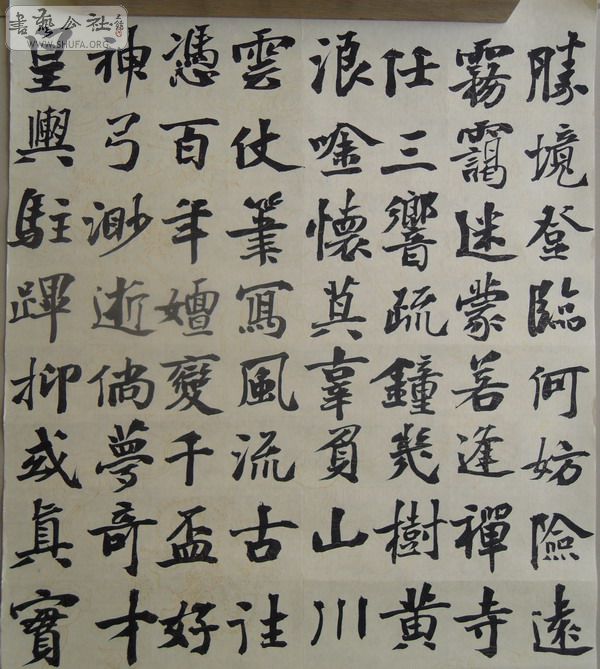 書藝公社
WWW.SHUFA.ORG
勝境登臨何妨險遠
霧靄迷蒙若逢禪寺
任三響疏鐘幾樹黃
浪唫懷莫辜負山川
雲仗筆寫風流古往
憑百年嬗變千盃好
神弓渺逝倘夢奇才
皇輿駐蹕抑或眞實